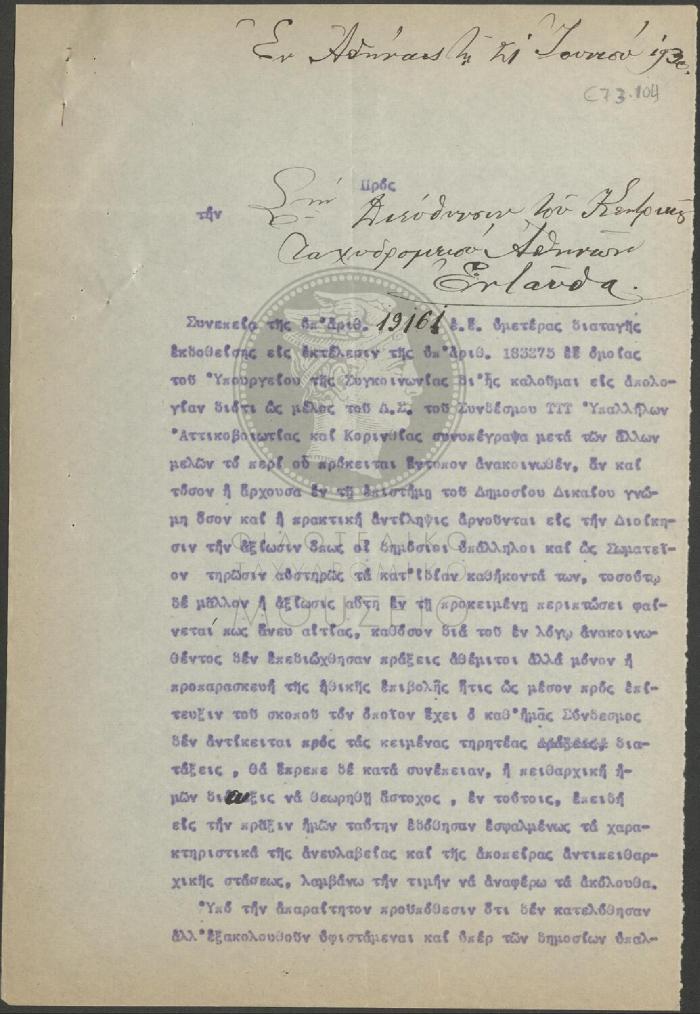 Ἐν Ἀθήναις τῇ 21 Ἰουνίου 1930.
C73.104
Πρός
τήν Διεύθυνσιν τοῦ Κεντρικοῦ
Ταχυδρομείου Ἀθηνῶν
Ἐνταῦθα.
Συνεπείᾳ τῆς ὑπ'ἀριθ. 19161 ἐ.ἔ. ὑμετέρας διαταγῆς
ἐκδοθείσης εἰς ἐκτέλεσιν τῆς ὑπ'ἀριθ. 183275 ἐξ ὁμοίας
τοῦ Ὑπουργείου τῆς Συγκοινωνίας δι'ἧς καλοῦμαι εἰς ἀπολο-
γίαν διότι ὡς μέλος τοῦ Δ.Σ. τοῦ Συνδέσμου ΤΤΤ Ὑπαλλήλων
Ἀττικοβοιωτίας καί Κορινθίας συνυπέγραψα μετά τῶν ἄλλων
μελῶν τό περί οὗ πρόκειται ἔντυπον ἀνακοινωθέν, ἄν καί
τόσον ἡ ἄρχουσα ἐν τῇ ἐπιστήμῃ τοῦ Δημοσίου Δικαίου γνώ-
μη ὅσον καί ἡ πρακτική ἀντίληψις ἀρνοῦνται εἰς τήν Διοίκη-
σιν τήν ἀξίωσιν ὅπως οἱ δημόσιοι ὑπάλληλοι καί ὡς Σωματεῖ-
ον τηρῶσιν αὐστηρῶς τά κατ'ἰδίαν καθήκοντά των, τοσούτῳ
δέ μᾶλλον ἡ ἀξίωσις αὕτη ἐν τῇ προκειμένῃ περιπτώσει φαί-
νεται πως ἄνευ αἰτίας, καθόσον διά τοῦ ἐν λόγῳ ἀνακοινω-
θέντος δέν ἐπεδιώχθησαν πράξεις ἀθέμιτοι ἀλλά μόνον ἡ
προπαρασκευή τῆς ἠθικῆς ἐπιβολῆς ἥτις ὡς μέσον πρός ἐπί-
τευξιν τοῦ σκοποῦ τόν ὁποῖον ἔχει ὁ καθ'ἡμᾶς Σύνδεσμος
δέν ἀντίκειται πρός τάς κειμένας τηρητέας δια-
τάξεις , θά ἔπρεπε δέ κατά συνέπειαν, ἡ πειθαρχική ἡ-
μῶν δίωξις νά θεωρηθῇ ἄστοχος , ἐν τούτοις, ἐπειδή
εἰς τήν πρᾶξιν ἡμῶν ταύτην ἐδόθησαν ἐσφαλμένως τά χαρα-
κτηριστικά τῆς ἀνευλαβείας καί τῆς ἀποπείρας ἀντιπειθαρ-
χικῆς στάσεως, λαμβάνω τήν τιμήν νά ἀναφέρω τά ἀκόλουθα.
Ὑπό τήν ἀπαραίτητον προϋπόθεσιν ὅτι δέν κατελύθησαν
ἀλλ'ἐξακολουθοῦν ὑφιστάμεναι καί ὑπέρ τῶν δημοσίων ὑπαλ-
ΦΙΛΟΤΕΛΙΚΟ
ΤΑΧΥΔΡΟΜΙΚΟ
ΜΟΥΣΕΙΟ